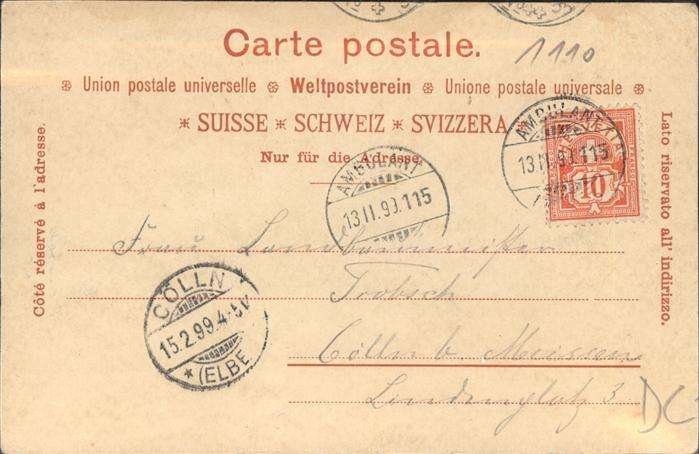 Carte postale.
1110
Union postale universelle Weltpostverein Unione postale universale
SUISSE SCHWEIZ SVIZZERA
Nur für die Adresse.
Côté réservé à l'adresse.
Lato riservato all' indirizzo.
AMBULANT
13.II.99.115
AMBULANT
13 II.99.115
10
Frau
CÖLLN
15.2.99.4-5V
* (ELBE
Cölln b. Meissen
3
DC